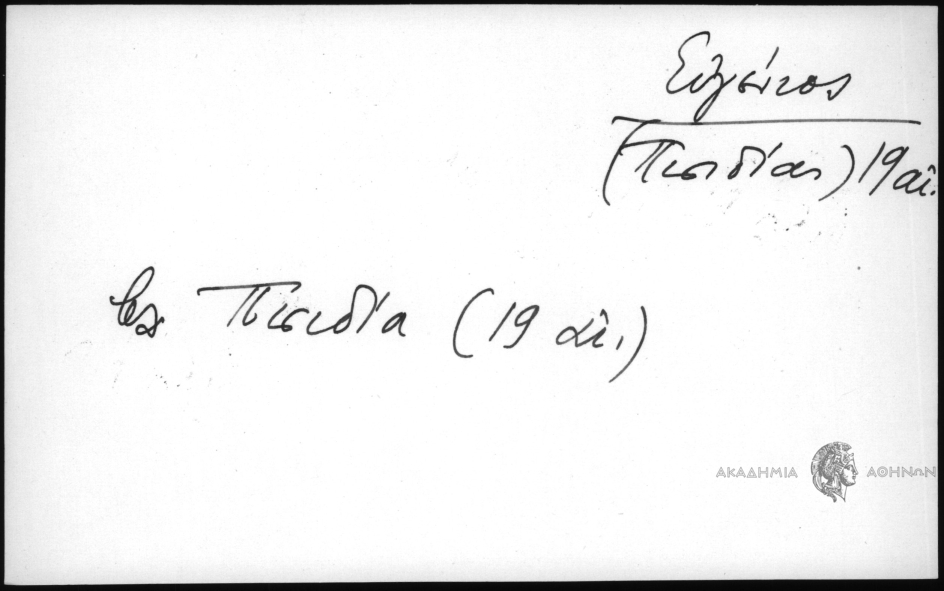 Εὐγένιος
(Πισιδίας) 19 αἰ.
βλ. Πισιδία (19 αἰ.)
ΑΚΑΔΗΜΙΑ ΑΘΗΝΩΝ